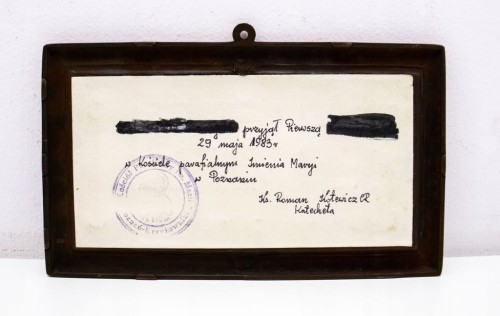 przyjął Pierwszą
29 maja 1983 r
w Kościele parafialnym Imienia Maryi
w Poznaniu
Ks. Roman
Katecheta